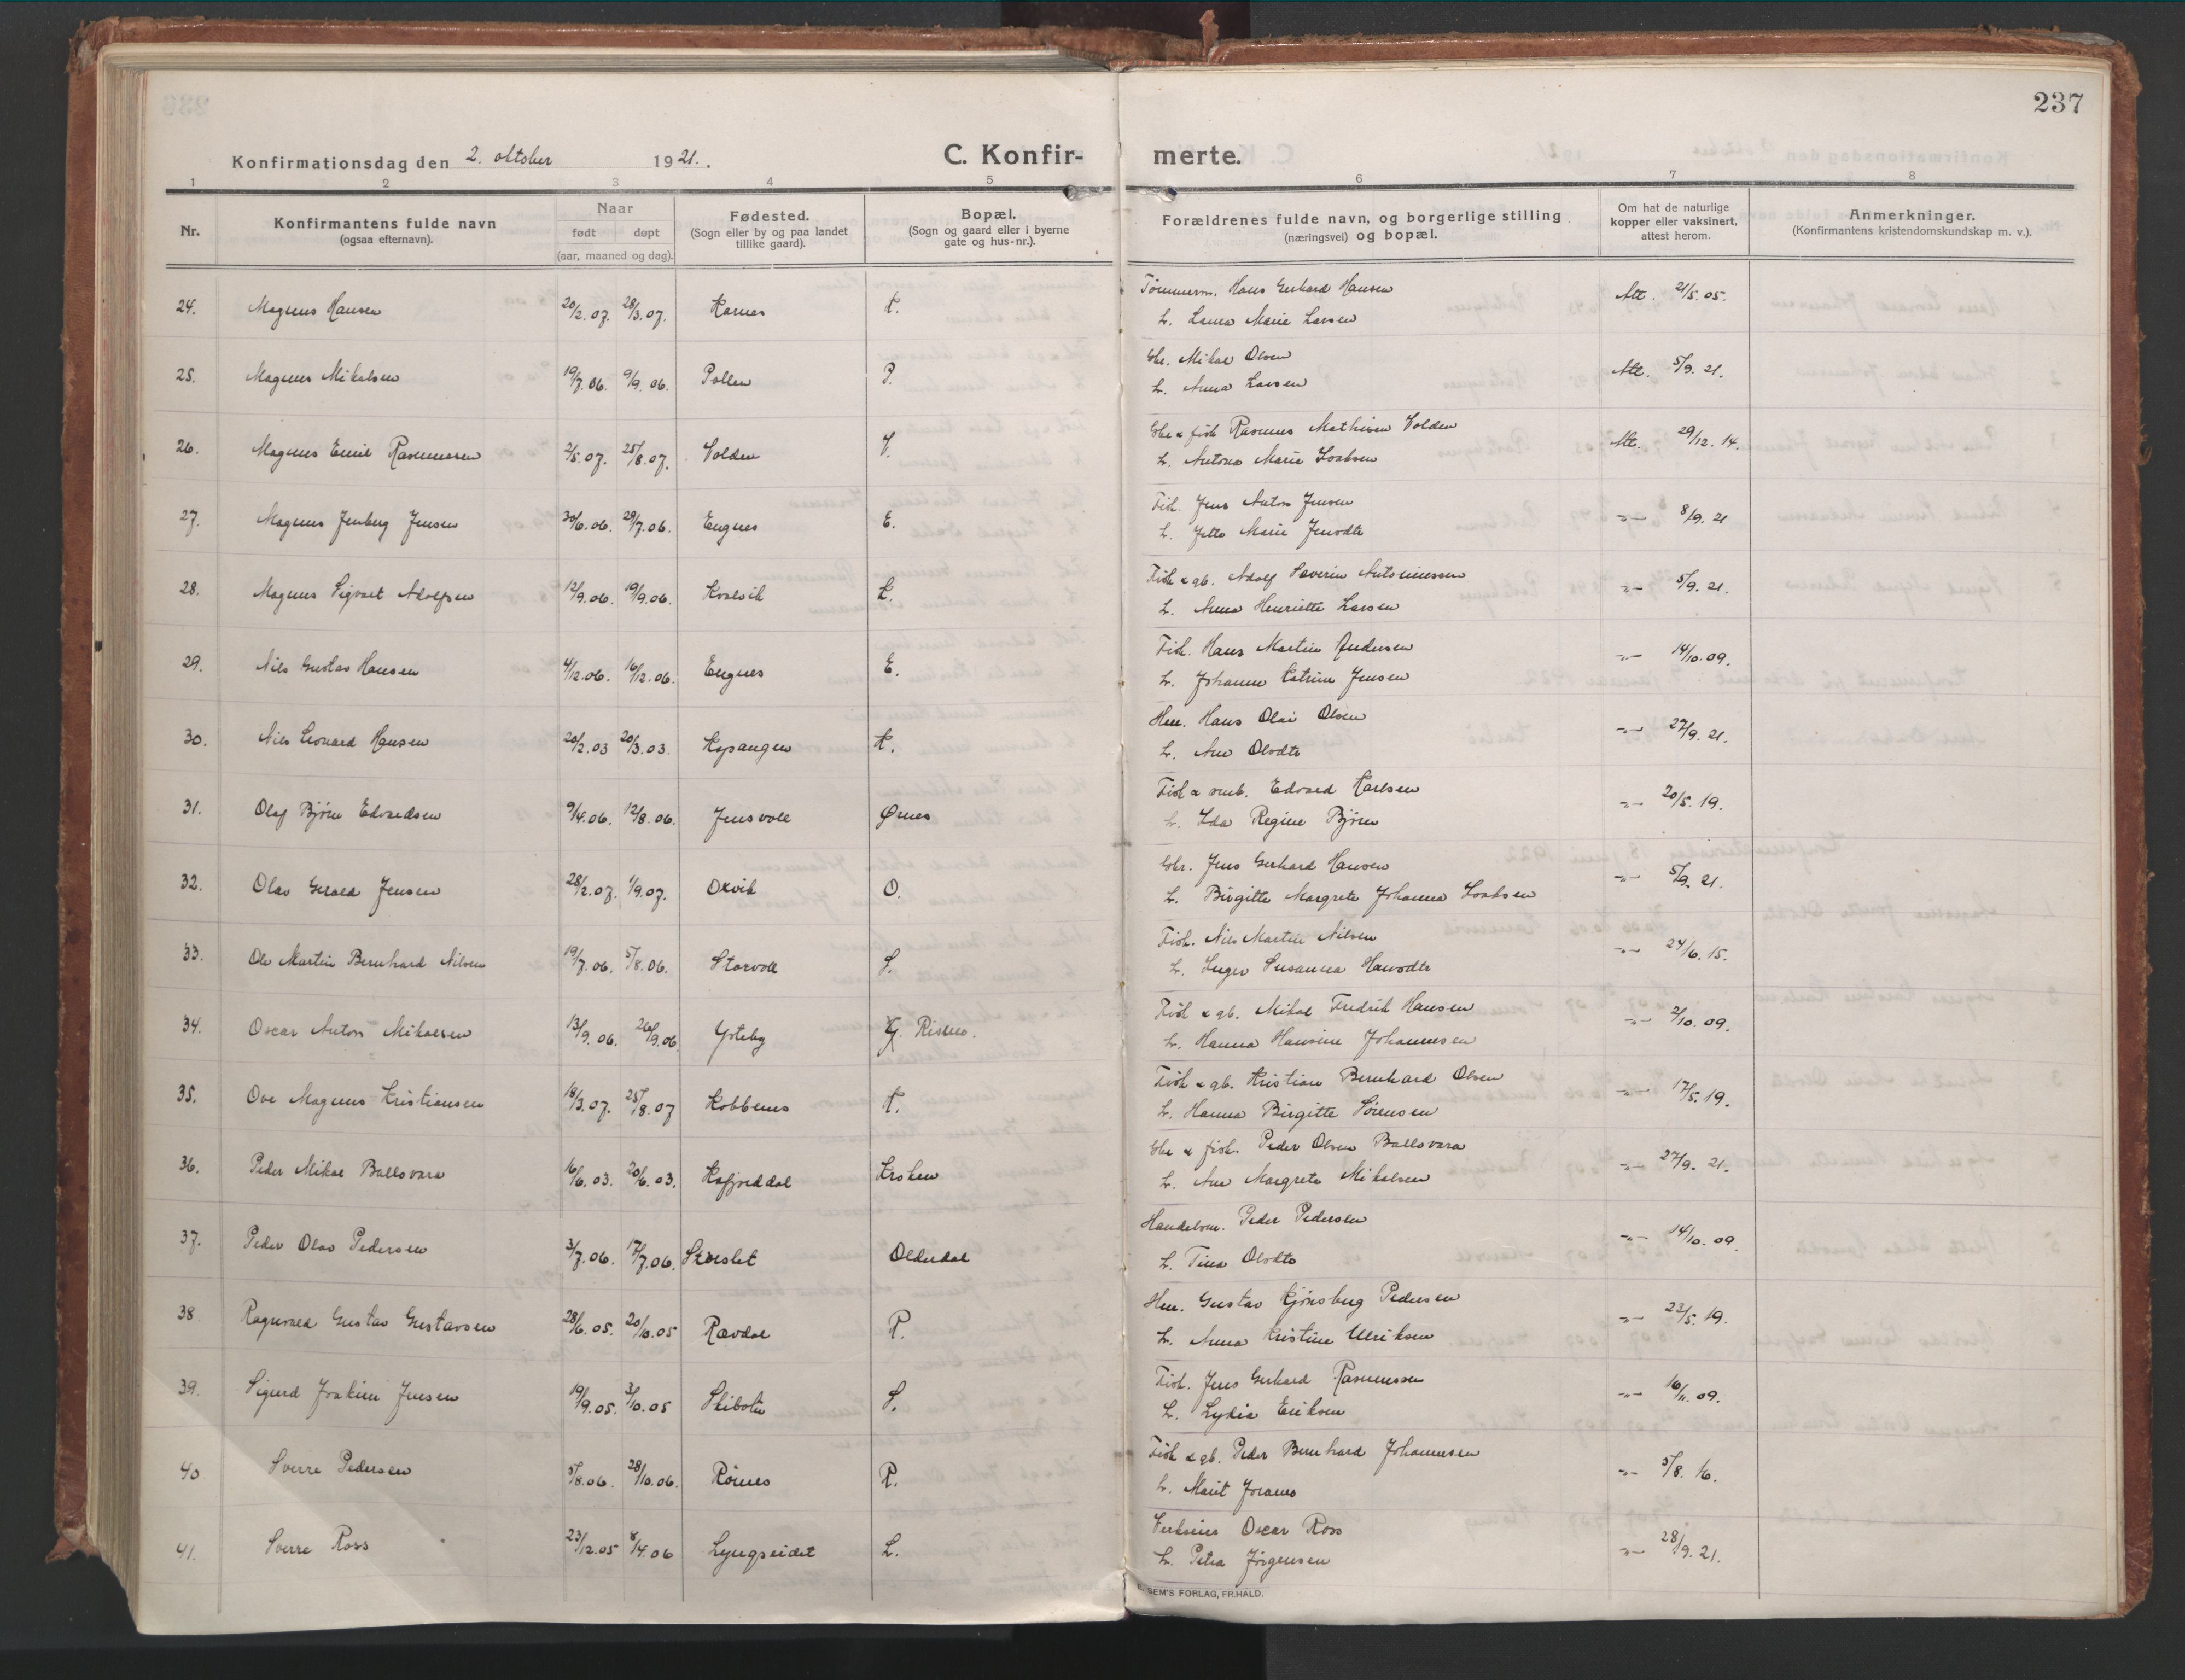 237
Konfirmationsdag den 2. oktober 1921.
C. Konfir- merte.
1 2 3 4 5 6 7 8
Nr.
Konfirmantens fulde navn
(ogsaa efternavn).
Naar
født døpt
(aar, maaned og dag).
Fødested.
(Sogn eller by og paa landet
tillike gaard).
Bopæl.
(Sogn og gaard eller i byerne
gate og hus-nr.).
Forældrenes fulde navn, og borgerlige stilling
(næringsvei) og bopæl.
Om hat de naturlige
kopper eller vaksinert,
attest herom.
Anmerkninger.
(Konfirmantens kristendomskundskap m. v.).
24. Magnus Hansen 20/2.07. 28/3.07. Karnes K. Tømmerm. Hans Gerhard Hansen Att. 21/5.05.
h. Laura Marie Larsen
25. Magnus Mikalsen 19/7.06. 9/9.06. Pollen P. Gbr. Mikal Olsen Att. 5/9.21.
h. Anna Larsen
26. Magnus Emil Rasmussen 2/5.07. 25/8.07. Volden V. Gbr & fisk Rasmus Mathisen Volden Att. 29/12.14.
h. Antona Marie Isaksen
27. Magnus Jenberg Jensen 30/6.06. 29/7.06. Engnes E. Fisk. Jens Anton Jensen -"- 8/9.21
h. Jette Marie Jensdtr
28. Magnus Sigvart Adolfsen 12/9.06. 19/9.06. Kvalvik K. Fisk & gb. Adolf Severin Antoniussen -"- 5/9.21.
h. Anna Henriette Larsen
29. Nils Gustav Hansen 4/12.06. 16/12.06. Engnes E. Fisk. Hans Martin Andersen -"- 14/10.09.
h. Johanne Katrine Jensen
30. Nils Leonard Hansen 20/2.03 20/3.03. Kopangen K. Hm. Hans Olai Olsen -"- 27/9.21.
h. Ane Olsdtr
31. Olaf Bjørn Edvardsen 9/4.06. 12/8.06. Jensvoll Ørnes Fisk & smb. Edvard Karlsen -"- 20/5.19.
h. Ida Regine Bjørn
32. Olav Gerald Jensen 28/2.07. 1/9.07. Oxvik O. Gbr. Jens Gerhard Hansen -"- 5/9.21.
h. Birgitte Margrete Johanna Isaksen
33. Ole Martin Bernhard Nilsen 19/7.06. 5/8.06. Storvoll S. Fisk. Nils Martin Nilsen -"- 24/6.15.
h. Inger Susanna Hansdtr
34. Oscar Anton Mikalsen 13/9.06. 26/9.06. Ysteby Y. Risnes. Fisk & gb. Mikal Fredrik Hansen -"- 2/10.09.
h. Hanna Hansine Johannesen
35. Ove Magnus Kristiansen 18/3.07. 25/8.07 Kobbenes K. Fisk & gb. Kristian Bernhard Olsen -"- 17/5.19.
h. Hanna Birgitte Sørensen
36. Peder Mikal Ballovara 16/6.03. 20/6.03. Kafjorddal Kroken Gbr & fisk. Peder Olsen Ballovara -"- 27/9.21.
h. Ane Margrete Mikalsen
37. Peder Olav Pedersen 3/7.06. 17/7.06. Skarslet Olderdal Handelsm. Peder Pedersen -"- 14/10.09.
h. Tina Olsdtr
38 Ragnvald Gustav Gustavsen 28/6.05. 20/10.05 Rævdal R. Hm. Gustav Kjønsberg Pedersen -"- 23/5.19.
h. Anna Kristine Ulriksen
39. Sigurd Joakim Jensen 19/9.05. 3/10.05 Skibotn S. Fisk. Jens Gerhard Rasmussen -"- 16/11.09.
h. Lydia Eriksen
40 Sverre Pedersen 5/8.06. 28/10.06. Rørnes R. Fisk & gb. Peder Bernhard Johannesen -"- 5/8.16.
h. Marit Joramo
41. Sverre Ross 23/12.05 8/4.06 Lyngseidet L. Oscar Ross -"- 28/9.21.
h. Petra Jørgensen
SEM'S FORLAG, FR.HALD.